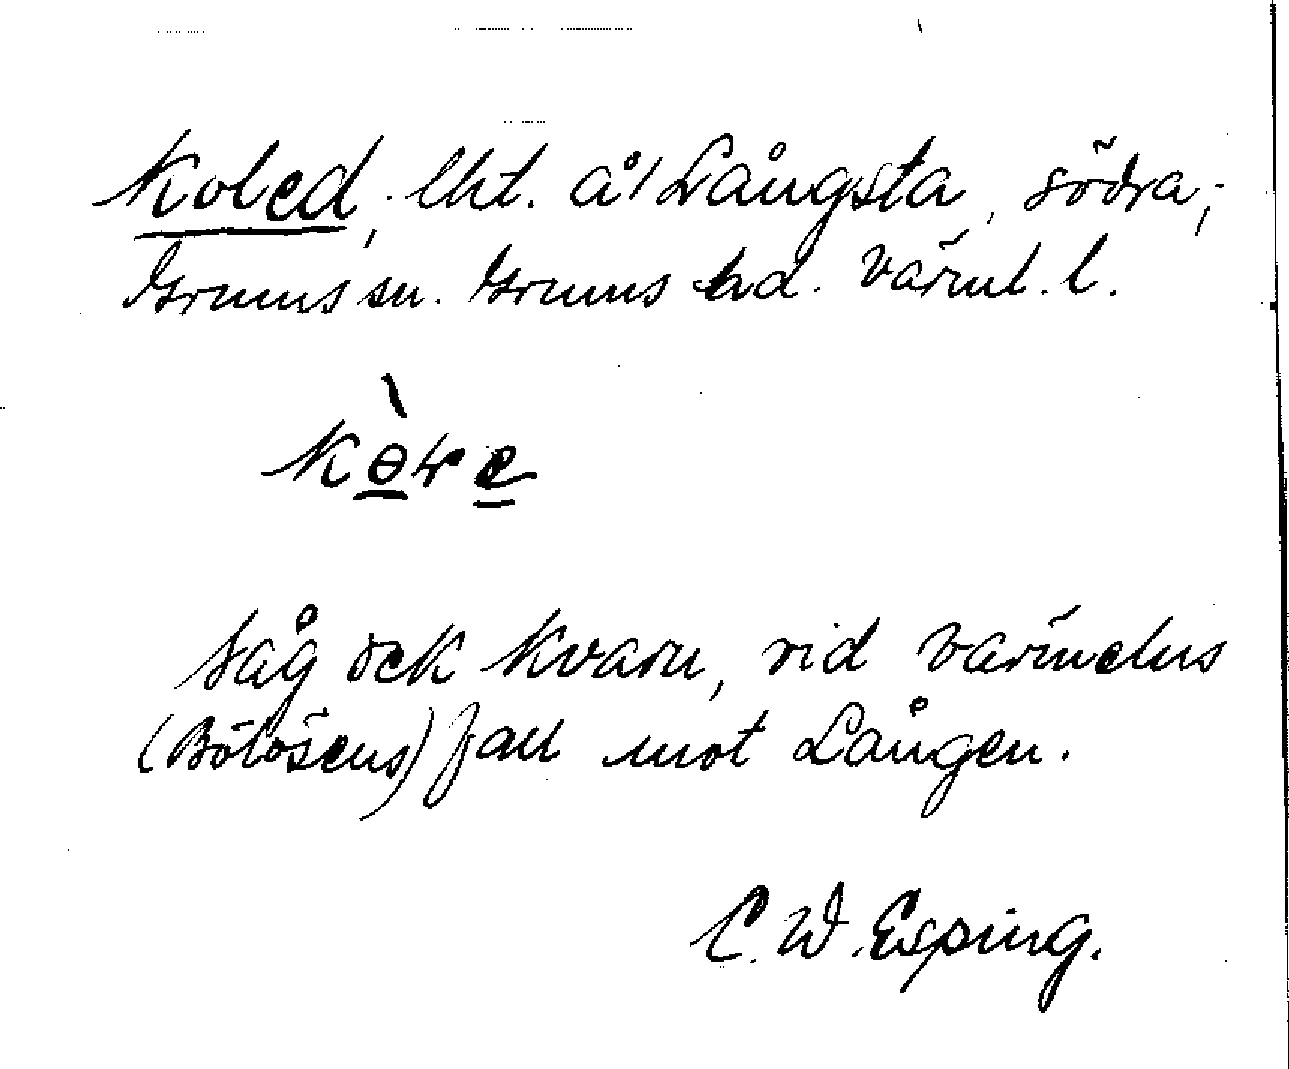 Koled, lht. å/ Långsta, södra;
Grums sn. Grums hd. Värml. l.
Såg ock kvarn, vid Värmelns
(Bölösens) fall mot Lången.
C. W. Esping.